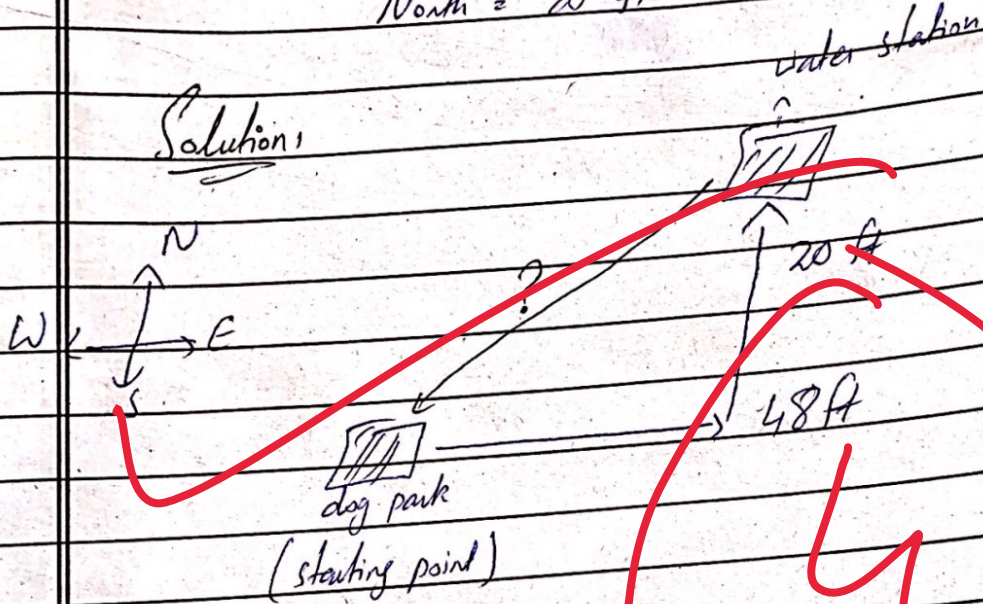 North = 20
water station
Solution:
N
20 ft
?
W E
S
48 ft
dog park
(starting point)
4